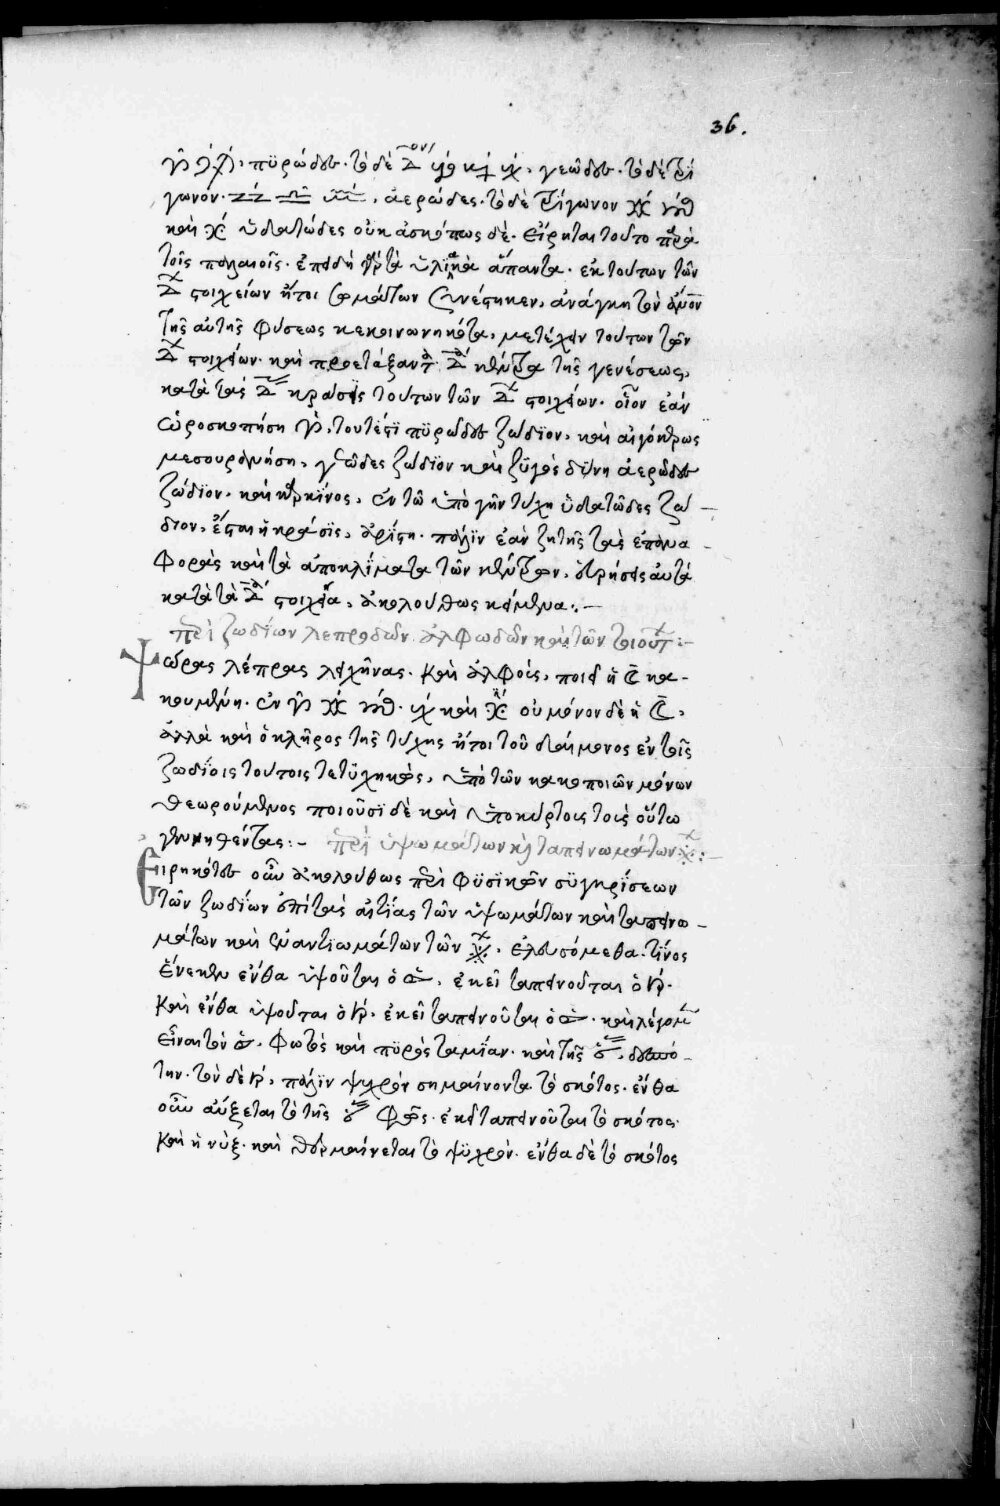 36.
♈ ♌ ♐, πυρώδους· τὸ δὲ Δον ♉ ♍ ♑, γεώδους· τὸ δὲ τρί
γωνον· ♊ ♎ ♒, ἀερώδες· τὸ δὲ τρίγωνον ♋ ♏
καὶ ♓ ὑδατώδες οὐκ ἀσκόπως δὲ· εἴρηται τοῦτο παρὰ
τοῖς παλαιοῖς· ἐπειδὴ γὰρ τὰ ὑλικὰ ἅπαντα· ἐκ τούτων τῶν
Δ στοιχείων ἤτοι σωμάτων συνέστηκεν, ἀνάγκη τὸν
τῆς αὐτῆς φύσεως κεκοινωνηκότα, μετέχειν τούτων τῶν
Δ στοιχείων· καὶ προετάξαντο τὰ Δ κέντρα τῆς γενέσεως,
κατὰ τὰς Δ κράσεις τούτων τῶν Δ στοιχείων· οἷον ἐὰν
ὡροσκοπήση ♈, τουτέστϊ πϋρώδους ζώδϊον, καὶ αἰγόκερως
μεσουρανήση, γεῶδες ζώδϊον καὶ ζϋγὸς δϋνη ἀερώδους
ζώδϊον· καὶ καρκῖνος, ἐν τῶ ὑπὸ γῆν τύχη ὑδατῶδες ζώ
διον, ἔσται ἡ κράσϊς, ἀρίστη· πάλϊν ἐὰν ζητῆς τὰς ἐπανα
φορὰς καὶ τὰ ἀποκλίματα τῶν κέντρων, εὑρήσεις αὐτὰ
κατὰ τὰ Δ στοιχεῖα, ἀκολούθως κείμενα:· —
περὶ ζωδίων λεπρωδῶν ἀλφωδῶν καὶ τῶν τοιούτ:—
Ψώρας λέπρας λειχῆνας· καὶ ἀλφοὺς, ποιεῖ ἡ ☾ κα-
κουμένη· ἐν ♈ ♋ ♏· ♑ καὶ ♓ οὐ μόνον δὲ ἡ ☾,
ἀλλὰ καὶ ὁ κλῆρος τῆς τύχης ἤτοι τοῦ δαίμονος ἐν τοῖς
ζωδίοις τούτοις τετϋχηκὼς, ὑπὸ τῶν κακοποιῶν μόνων
θεωρούμενος ποιοῦσϊ δὲ καὶ ὑποκύρτους τοὺς οὕτω
γεννηθέντας:— περὶ ὑψωμάτων καὶ ταπεινωμάτων:—
Εἰρηκότες οὖν ἀκολούθως περὶ φϋσϊκῶν σϋγκρίσεων
τῶν ζωδίων ἐπὶ τὰς αἰτίας τῶν ὑψωμάτων καὶ ταπεινω-
μάτων καὶ ἐναντιωμάτων τῶν, ἐλευσόμεθα· τίνος
ἕνεκεν ἔνθα ὑψοῦται ὁ ☉, ἐκεῖ ταπεινοῦται ὁ ♄·
καὶ ἔνθα ὑψοῦται ὁ ♄· ἐκεῖ ταπεινοῦται ὁ ☉· καὶ λέγομεν
εἶναι τὸν ☉· φωτὸς καὶ πϋρὸς ταμίαν· καὶ τῆς
την· τὸν δὲ ♄, πάλϊν ψυχρὸν σημαίνοντα τὸ σκότος· ἔνθα
οὖν αὔξεται τὸ τῆς φῶς· ἐκεῖ ταπεινοῦται τὸ σκότος·
καὶ ἡ νὺξ· καὶ θερμαίνεται τὸ ψϋχρὸν· ἔνθα δὲ τὸ σκότος